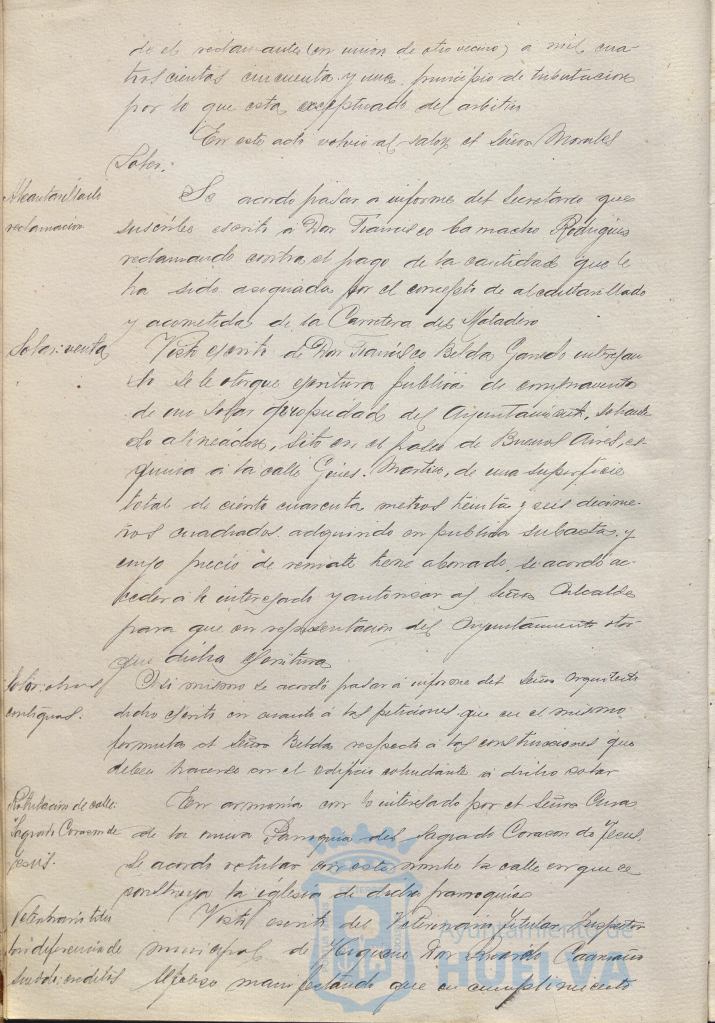 de el reclamante (en union de otro vecino) a mil cua-
troscientas cincuenta y una, principio de tributacion
por lo que esta exceptuado del arbitrio
En este acto volvio al salon el Señor Morales
Soler.
Alcantarillado
reclamacion
Se acordó pasar a informe del Secretario que
suscribe escrito de Don Francisco Camacho Rodriguez
reclamando contra el pago de la cantidad que le
ha sido asignada por el concepto de alcantarillado
y acometida de la Carretera del Matadero
Solar: venta
Visto escrito de Don Francisco Belda Garrido interesan-
do se le otorgue escritura publica de compraventa
de un solar propiedad del Ayuntamiento, sobrante
de alineacion, sito en el paseo de Buenos Aires, es-
quina a la calle Gines Martin, de una superficie
total de ciento cuarenta metros treinta y seis decime-
tros cuadrados adquirido en publica subasta, y
cuyo precio de remate tiene abonado, se acordó ac-
ceder a lo interesado y autorizar al Señor Alcalde
para que en representacion del Ayuntamiento otor
gue dicha escritura
Solar: obras
contiguas.
Asi mismo se acordó pasar á informe del Señor Arquitecto
dicho escrito en cuanto á las peticiones que en el mismo
formula el Señor Belda respecto á las construcciones que
deben hacerse en el edificio colindante a dicho solar
Rotulacion de calle:
Sagrado Corazon de
Jesús.
En armonia con lo interesado por el Señor Cura
de la nueva Parroquia del Sagrado Corazon de Jesus
se acordó rotular con este nombre la calle en que se
construya la iglesia de dicha parroquia
Veterinario titu
lar: diferencia de
sueldo: creditos
Visto escrito del Veterinario Titular Inspector
municipal de Higiene Don
manifestando que en cumplimiento
Ayuntamiento de
HUELVA